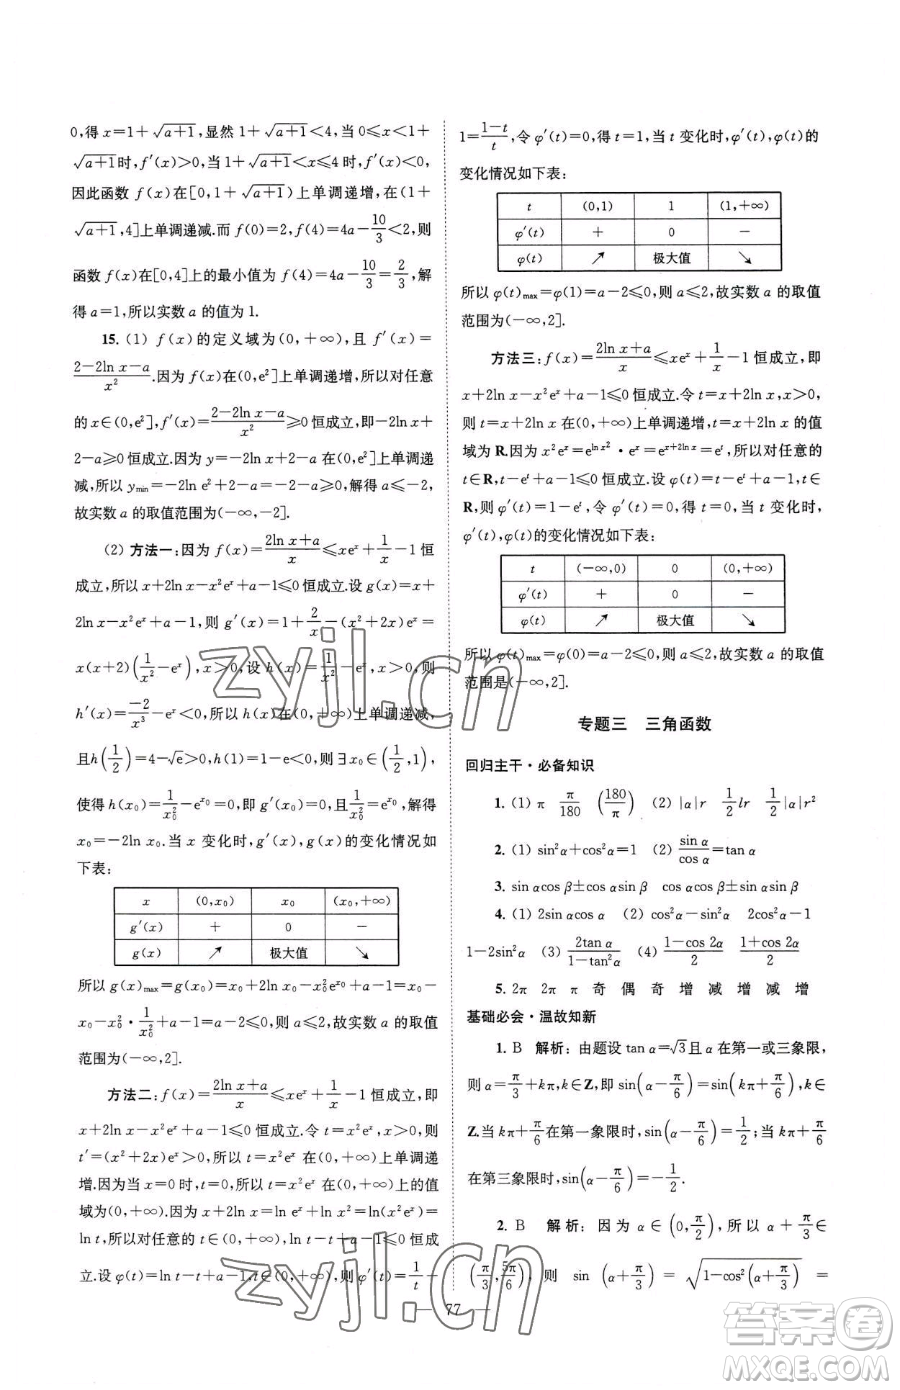 0,得 x=1+√(a+1),显然 1+√(a+1)<4,当 0≤x<1+
√(a+1)时,f′(x)>0,当 1+√(a+1)<x≤4 时,f′(x)<0,
因此函数 f(x)在[0,1+√(a+1)]上单调递增,在(1+
√(a+1),4]上单调递减.而 f(0)=2,f(4)=4a-10/3<2,则
函数 f(x)在[0,4]上的最小值为 f(4)=4a-10/3=2/3,解
得 a=1,所以实数 a 的值为 1.
15. (1) f(x)的定义域为(0,+∞),且 f′(x)=
(2-2ln x-a)/x².因为 f(x)在(0,e²]上单调递增,所以对任意
的 x∈(0,e²],f′(x)=(2-2ln x-a)/x²≥0 恒成立,即-2ln x+
2-a≥0 恒成立.因为 y=-2ln x+2-a 在(0,e²]上单调递
减,所以 yₘᵢₙ=-2ln e²+2-a=-2-a≥0,解得 a≤-2,
故实数 a 的取值范围为(-∞,-2].
(2) 方法一:因为 f(x)=(2ln x+a)/x≤xeˣ+1/x-1 恒
成立,所以 x+2ln x-x²eˣ+a-1≤0 恒成立.设 g(x)=x+
2ln x-x²eˣ+a-1,则 g′(x)=1+2/x-(x²+2x)eˣ=
x(x+2)(1/x²-eˣ),x>0,设 h(x)=1/x²-eˣ,x>0,则
h′(x)=-2/x³-eˣ<0,所以 h(x)在(0,+∞)上单调递减,
且 h(1/2)=4-√e>0,h(1)=1-e<0,则∃x₀∈(1/2,1),
使得 h(x₀)=1/x₀²-e^(x₀)=0,即 g′(x₀)=0,且1/x₀²=e^(x₀),解得
x₀=-2ln x₀.当 x 变化时,g′(x),g(x)的变化情况如
下表:
x (0,x₀) x₀ (x₀,+∞)
g′(x) + 0 -
g(x) ↗ 极大值 ↘
所以 g(x)ₘₐₓ=g(x₀)=x₀+2ln x₀-x₀²e^(x₀)+a-1=x₀-
x₀-x₀²·1/x₀²+a-1=a-2≤0,所以 a≤2,故实数 a 的取值
范围为(-∞,2].
方法二:f(x)=(2ln x+a)/x≤xeˣ+1/x-1 恒成立,即
x+2ln x-x²eˣ+a-1≤0 恒成立.令 t=x²eˣ,x>0,则
t′=(x²+2x)eˣ>0,所以 t=x²eˣ 在(0,+∞)上单调递
增.令 x=0,则 t=0,所以 t=x²eˣ 在(0,+∞)上的值
域为(0,+∞).因为 x+2ln x=ln eˣ+ln x²=ln(x²eˣ)=
ln t,所以对任意的 t∈(0,+∞),ln t-t+a-1≤0 恒成
立.设 φ(t)=ln t-t+a-1,t∈(0,+∞),则 φ′(t)=1/t-
1=(1-t)/t,令 φ′(t)=0,得 t=1,当 t 变化时,φ′(t),φ(t)的
变化情况如下表:
t (0,1) 1 (1,+∞)
φ′(t) + 0 -
φ(t) ↗ 极大值 ↘
所以 φ(t)ₘₐₓ=φ(1)=a-2≤0,解得 a≤2,故实数 a 的取值
范围为(-∞,2].
方法三:f(x)=(2ln x+a)/x≤xeˣ+1/x-1 恒成立,即
x+2ln x-x²eˣ+a-1≤0 恒成立.令 t=x+2ln x,x>0,
因为 t=x+2ln x 在(0,+∞)上单调递增,t=x+2ln x 的值
域为 R.因为 x²eˣ=e^(ln x²)·eˣ=e^(x+2ln x)=eᵗ,所以对任意的
t∈R,t-eᵗ+a-1≤0 恒成立.设 φ(t)=t-eᵗ+a-1,t∈
R,所以 φ′(t)=1-eᵗ,令 φ′(t)=0,得 t=0,当 t 变化时,
φ′(t),φ(t)的变化情况如下表:
t (-∞,0) 0 (0,+∞)
φ′(t) + 0 -
φ(t) ↗ 极大值 ↘
所以 φ(t)ₘₐₓ=φ(0)=a-2≤0,解得 a≤2,故实数 a 的取值
范围是(-∞,2].
专题三 三角函数
回归主干·必备知识
1. (1) π π/180 (180/π) (2) |α|r 1/2 lr 1/2|α|r²
2. (1) sin²α+cos²α=1 (2) sin α/cos α=tan α
3. sin αcos β±cos αsin β cos αcos β∓sin αsin β
4. (1) 2sin αcos α (2) cos²α-sin²α 2cos²α-1
1-2sin²α (3) 2tan α/(1-tan²α) (4) (1-cos 2α)/2 (1+cos 2α)/2
5. 2π 2π π 奇 偶 奇 增 减 增 减 增
基础必会·温故知新
1. B 解析:由题设 tan α=√3且 α 在第一或三象限,
则 α=π/3+kπ,k∈Z,即 sin(α-π/6)=sin(kπ+π/6),k∈
Z.当 kπ+π/6在第一象限时,sin(α-π/6)=1/2;当 kπ+π/6
在第三象限时,sin(α-π/6)=-1/2.
2. B 解析:因为 α∈(0,π/2),所以 α+π/3∈
(π/3,5π/6),则 sin(α+π/3)=√(1-cos²(α+π/3))=
77
zyjl.cn
zyjl.cn
答案圈
MXQE.COM